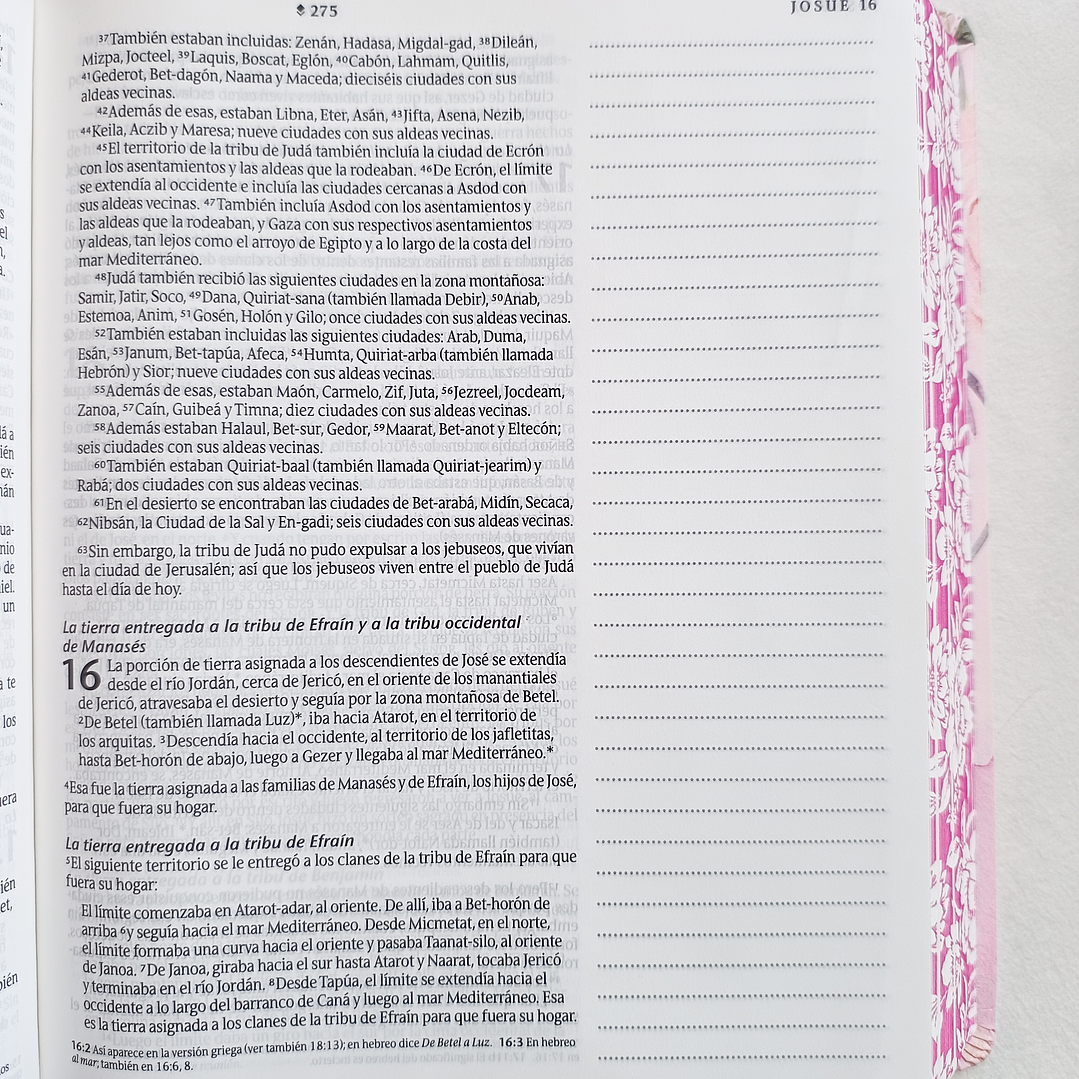 275
JOSUÉ 16
37También estaban incluidas: Zenán, Hadasa, Migdal-gad, 38Dileán,
Mizpa, Jocteel, 39Laquis, Boscat, Eglón, 40Cabón, Lahmam, Quitlis,
41Gederot, Bet-dagón, Naama y Maceda; dieciséis ciudades con sus
aldeas vecinas.
42Además de esas, estaban Libna, Eter, Asán, 43Jifta, Asena, Nezib,
44Keila, Aczib y Maresa; nueve ciudades con sus aldeas vecinas.
45El territorio de la tribu de Judá también incluía la ciudad de Ecrón
con los asentamientos y las aldeas que la rodeaban. 46De Ecrón, el límite
se extendía al occidente e incluía las ciudades cercanas a Asdod con
sus aldeas vecinas. 47También incluía Asdod con los asentamientos y
las aldeas que la rodeaban, y Gaza con sus respectivos asentamientos
y aldeas, tan lejos como el arroyo de Egipto y a lo largo de la costa del
mar Mediterráneo.
48Judá también recibió las siguientes ciudades en la zona montañosa:
Samir, Jatir, Soco, 49Dana, Quiriat-sana (también llamada Debir), 50Anab,
Estemoa, Anim, 51Gosén, Holón y Gilo; once ciudades con sus aldeas vecinas.
52También estaban incluidas las siguientes ciudades: Arab, Duma,
Esán, 53Janum, Bet-tapúa, Afeca, 54Humta, Quiriat-arba (también llamada
Hebrón) y Sior; nueve ciudades con sus aldeas vecinas.
55Además de esas, estaban Maón, Carmelo, Zif, Juta, 56Jezreel, Jocdeam,
Zanoa, 57Caín, Guibeá y Timna; diez ciudades con sus aldeas vecinas.
58Además estaban Halaul, Bet-sur, Gedor, 59Maarat, Bet-anot y Eltecón;
seis ciudades con sus aldeas vecinas.
60También estaban Quiriat-baal (también llamada Quiriat-jearim) y
Rabá; dos ciudades con sus aldeas vecinas.
61En el desierto se encontraban las ciudades de Bet-arabá, Midín, Secaca,
62Nibsán, la Ciudad de la Sal y En-gadi; seis ciudades con sus aldeas vecinas.
63Sin embargo, la tribu de Judá no pudo expulsar a los jebuseos, que vivían
en la ciudad de Jerusalén; así que los jebuseos viven entre el pueblo de Judá
hasta el día de hoy.
La tierra entregada a la tribu de Efraín y a la tribu occidental
de Manasés
16 La porción de tierra asignada a los descendientes de José se extendía
desde el río Jordán, cerca de Jericó, en el oriente de los manantiales
de Jericó, atravesaba el desierto y seguía por la zona montañosa de Betel.
2De Betel (también llamada Luz)*, iba hacia Atarot, en el territorio de
los arquitas. 3Descendía hacia el occidente, al territorio de los jafletitas,
hasta Bet-horón de abajo, luego a Gezer y llegaba al mar Mediterráneo.*
4Esa fue la tierra asignada a las familias de Manasés y de Efraín, los hijos de José,
para que fuera su hogar.
La tierra entregada a la tribu de Efraín
5El siguiente territorio se le entregó a los clanes de la tribu de Efraín para que
fuera su hogar:
El límite comenzaba en Atarot-adar, al oriente. De allí, iba a Bet-horón de
arriba 6y seguía hacia el mar Mediterráneo. Desde Micmetat, en el norte,
el límite formaba una curva hacia el oriente y pasaba Taanat-silo, al oriente
de Janoa. 7De Janoa, giraba hacia el sur hasta Atarot y Naarat, tocaba Jericó
y terminaba en el río Jordán. 8Desde Tapúa, el límite se extendía hacia el
occidente a lo largo del barranco de Caná y luego al mar Mediterráneo. Esa
es la tierra asignada a los clanes de la tribu de Efraín para que fuera su hogar.
16:2 Así aparece en la versión griega (ver también 18:13); en hebreo dice De Betel a Luz. 16:3 En hebreo
al mar; también en 16:6, 8.